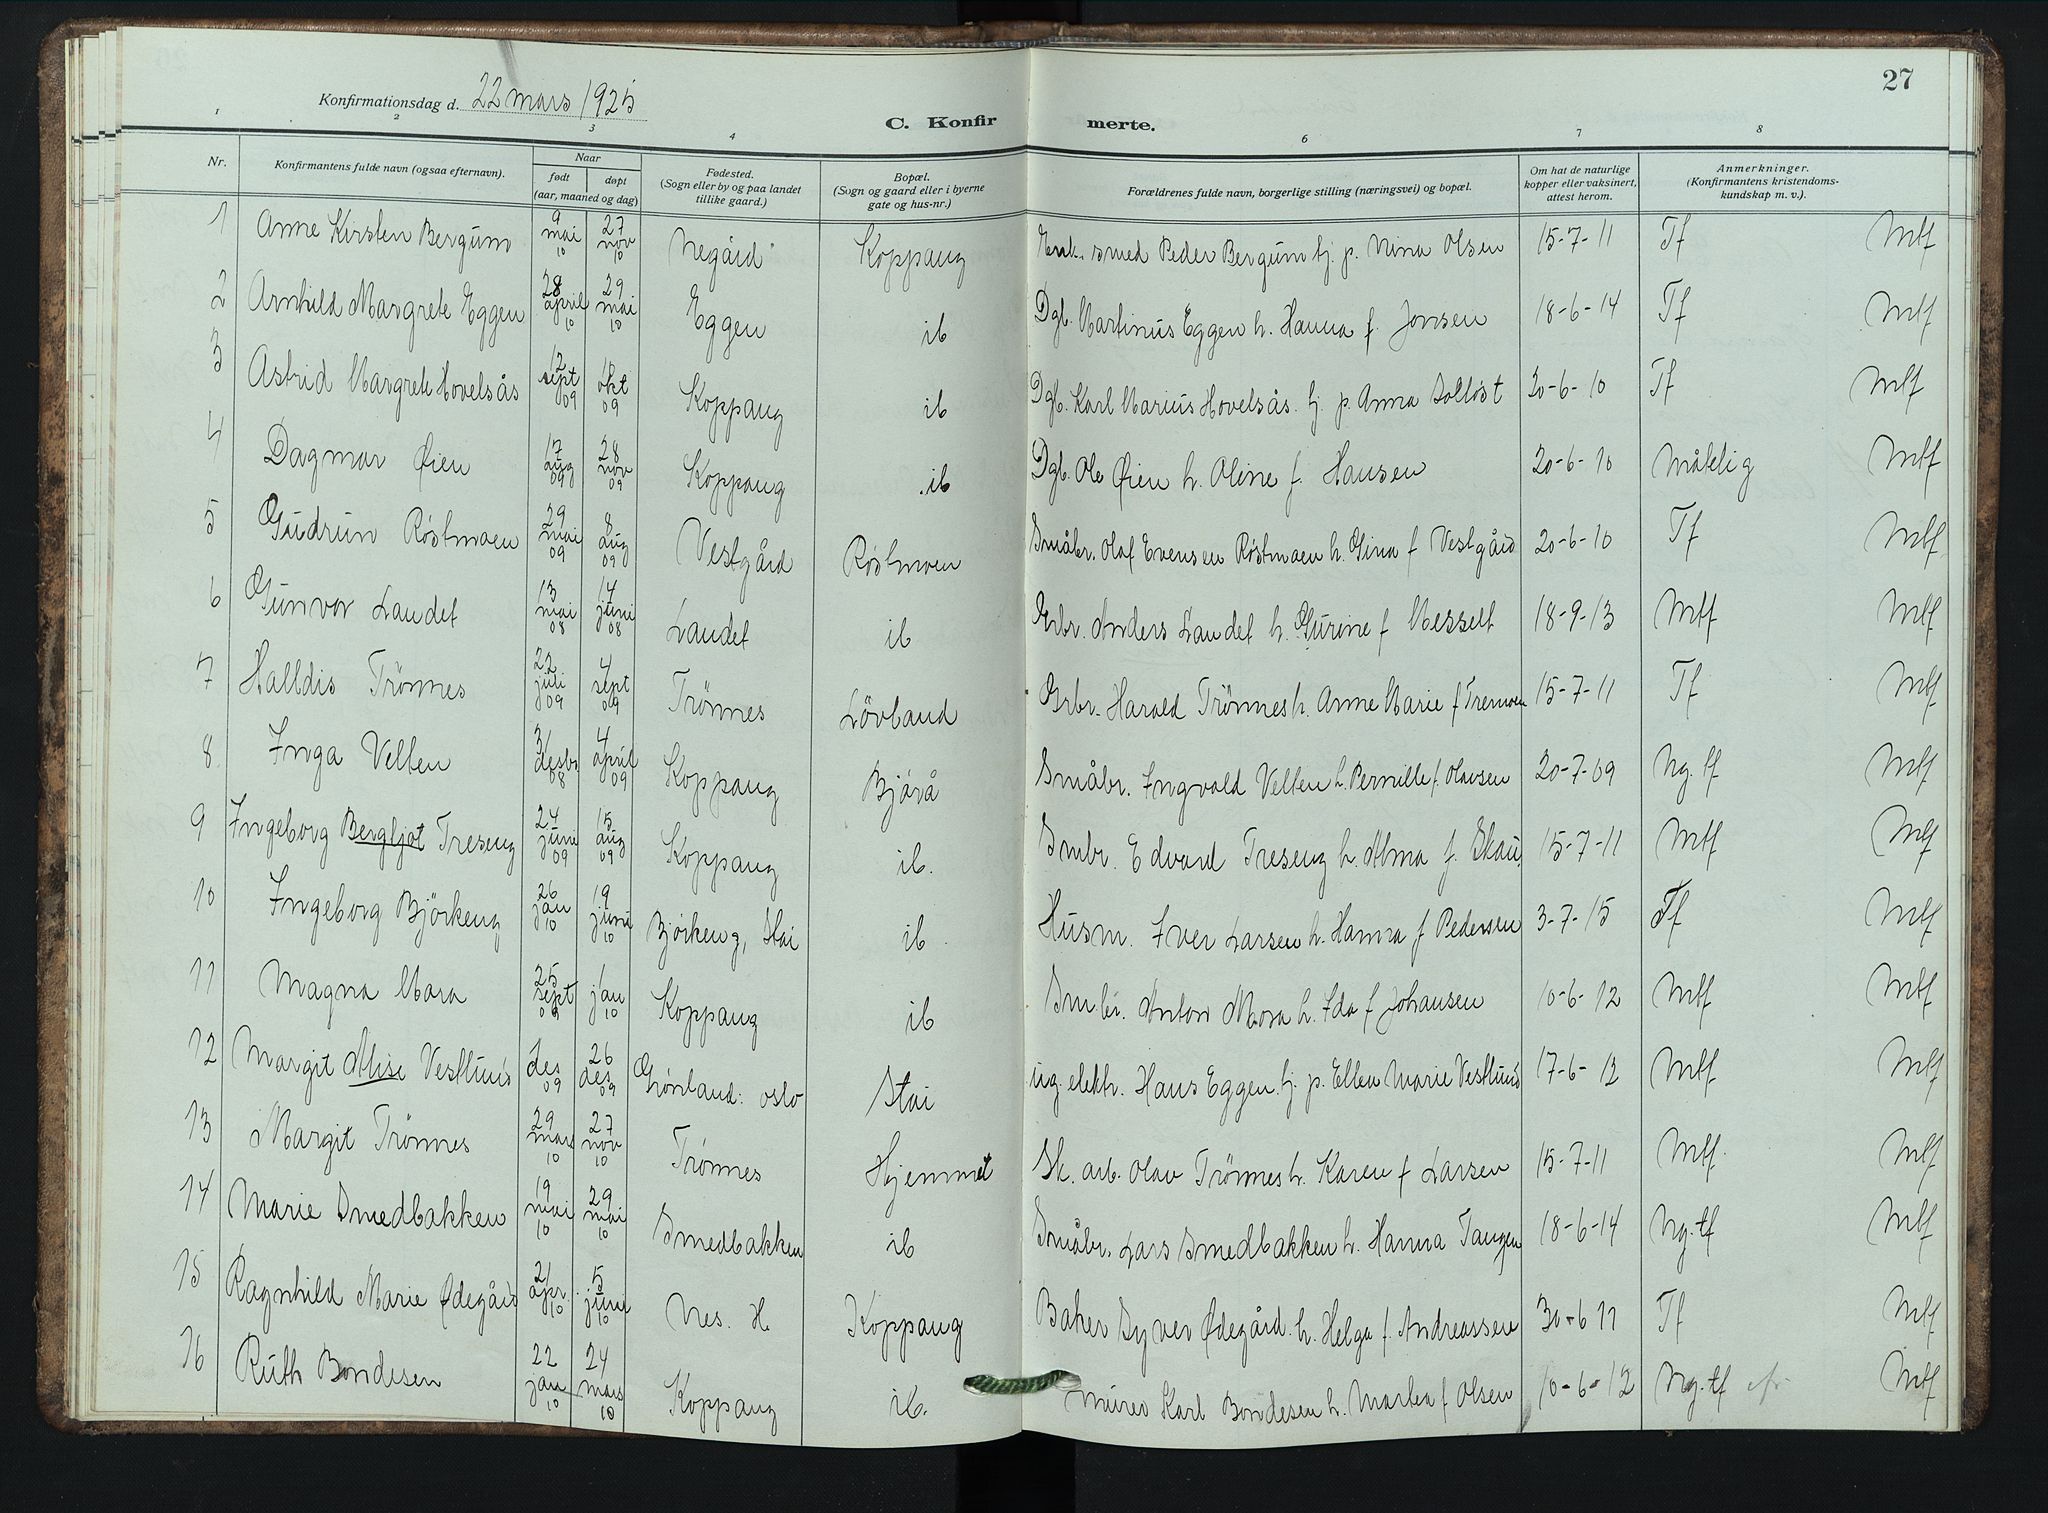 27
Konfirmationsdag d. 22 mars 1925
C. Konfirmerte.
1 2 3 4 5 6 7 8
Nr. Konfirmantens fulde navn (ogsaa efternavn). Naar født døpt (aar, maaned og dag) Fødested. (Sogn eller by og paa landet tillike gaard.) Bopæl. (Sogn og gaard eller i byerne gate og hus-nr.) Forældrenes fulde navn, borgerlige stilling (næringsvei) og bopæl. Om hat de naturlige kopper eller vaksinert, attest herom. Anmerkninger. (Konfirmantens kristendomskundskap m. v.).
1 Anne Kirsten Bergum 9 mai 10 27 nov 10 Negård Koppang smed Peder Bergum hj. p. Nina Olsen 15-7-11 Tf Mtf
2 Arnhild Margrete Eggen 28 april 10 29 mai 10 Eggen ib Dgb. Martinus Eggen h. Hanna f. Jonsen 18-6-14 Tf Mtf
3 Astrid Margrete Hovelsås 12 sept 09 okt 09 Koppang ib Dgb. Karl Marius Hovelsås. hj. p. Anna Solløst 20-6-10 Tf Mtf
4 Dagmar Øien 17 aug 09 28 nov 09 Koppang ib Dgb. Ole Øien h. Oline f. Hansen 20-6-10 Måtelig Mtf
5 Gudrun Røstmoen 29 mai 09 8 aug 09 Vestgård Røstmoen Småbr. Olaf Evensen Røstmoen h. Gina f Vestgård 20-6-10 Tf Mtf
6 Gunvor Landet 13 mai 08 14 juni 08 Landet ib Grbr. Anders Landet h. Gurine f Messelt 18-9-13 Mtf Mtf
7 Halldis Trönnes 22 juli 09 4 sept 09 Trönnes Lövland Grbr. Harald Trönnes h. Anne Marie f Tremoen 15-7-11 Tf Mtf
8 Inga Velten 31 desbr 08 4 april 09 Koppang Bjørå Småbr. Ingvald Velten h. Pernille f. Olavsen 20-7-09 Ng. tf Mtf
9 Ingeborg Bergljot Treseng 24 juni 09 15 aug 09 Koppang ib. Smbr. Edvard Treseng h. Alma f. Skau 15-7-11 Mtf Mtf
10 Ingeborg Björkeng 26 jan 10 19 juni 10 Bjørkeng, Stai ib Husm. Iver Larsen h. Hanna f Pedersen 3-7-15 Tf Mtf
11 Magna Mora 25 sept 09 1 jan 10 Koppang ib Smbr. Anton Mora h. Ida f Johansen 10-6-12 Mtf Mtf
12 Margit Alise Vestlund 1 des 09 26 des 09 Grønland. oslo Stai ug. elektr. Hans Eggen hj. p. Ellen Marie Vestlund 17-6-12 Mtf Mtf
13 Margit Trönnes 29 mars 10 27 nov 10 Trönnes Hjemmet Sk. arb. Olav Trönnes h. Karen f Larsen 15-7-11 Mtf Mtf
14 Marie Smedbakken 19 mai 10 29 mai 10 Smedbakken ib Småbr. Lars Smedbakken h. Hanna Tangen 18-6-14 Ng. tf Mtf
15 Ragnhild Marie Ødegård 21 apr. 10 5 juni 10 Nes. H. Koppang Baker Syver Ødegård h. Helga f. Andreassen 30-6 11 Tf Mtf
16 Ruth Bondesen 22 jan 10 24 mars 10 Koppang ib. murer Karl Bondesen h. Martea f Olsen 10-6-12 Ng. tf Mtf